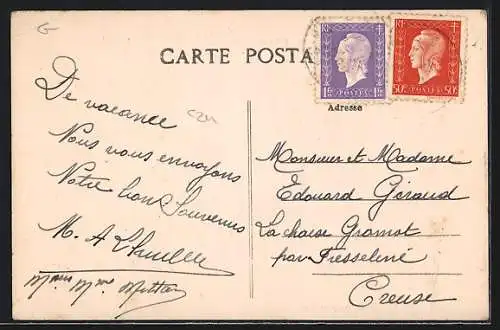 CARTE POSTA
RF
1F POSTES 1F
RF
50c POSTES 50c
Adresse
De vacance
Nous vous envoyons
Notre bon Souvenir
M. A
Monsieur et Madame
Edouard Giraud
La chaise Gramot
par Fresseline
Creuse